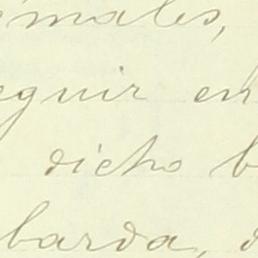 imales,
eguir en
dicho b
barda, d